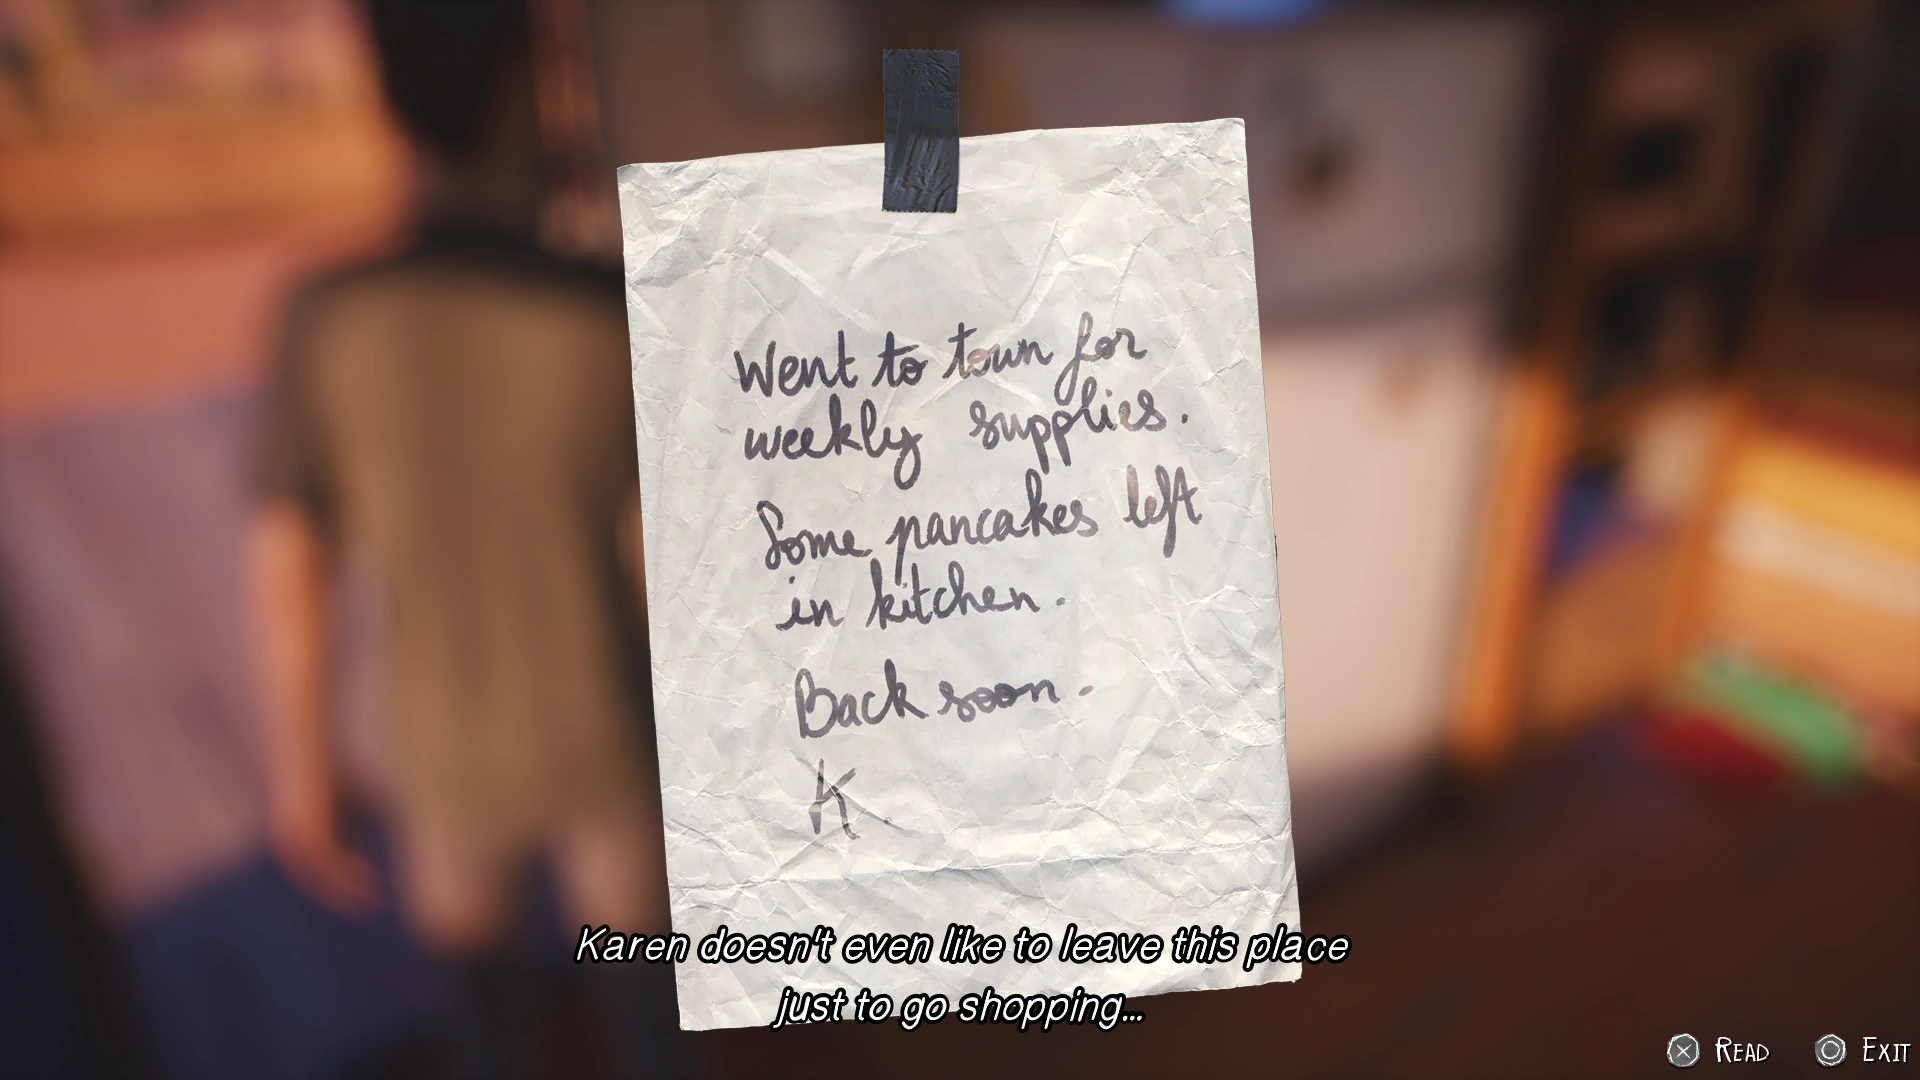 Went to town for
weekly supplies.
Some pancakes left
in kitchen.
Back soon.
K.
Karen doesn't even like to leave this place
just to go shopping...
READ EXIT